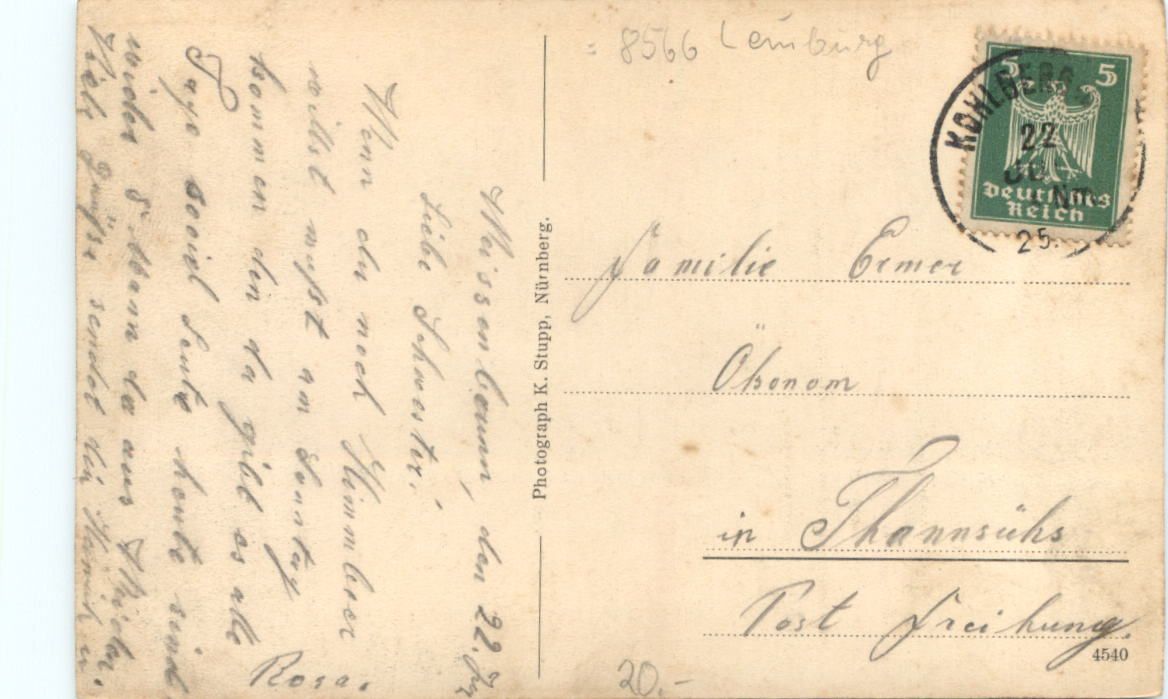 Weissenbrunn, den 22. July
Liebe Schwester!
Wenn du noch Himmbeer
willst mußt am Sonntag
kommen den da gibt es alle
Tage soviel Leute heute sind
wieder 5 Mann da aus
Viele Grüße sendet
Rosa.
Photograph K. Stupp, Nürnberg.
8566 Leinburg
5 5
Deutsches
Reich
KOHLBERG
22
25.
Familie Ermer
Ökonom
in Thannsühs
Post Freihung.
4540
20.-